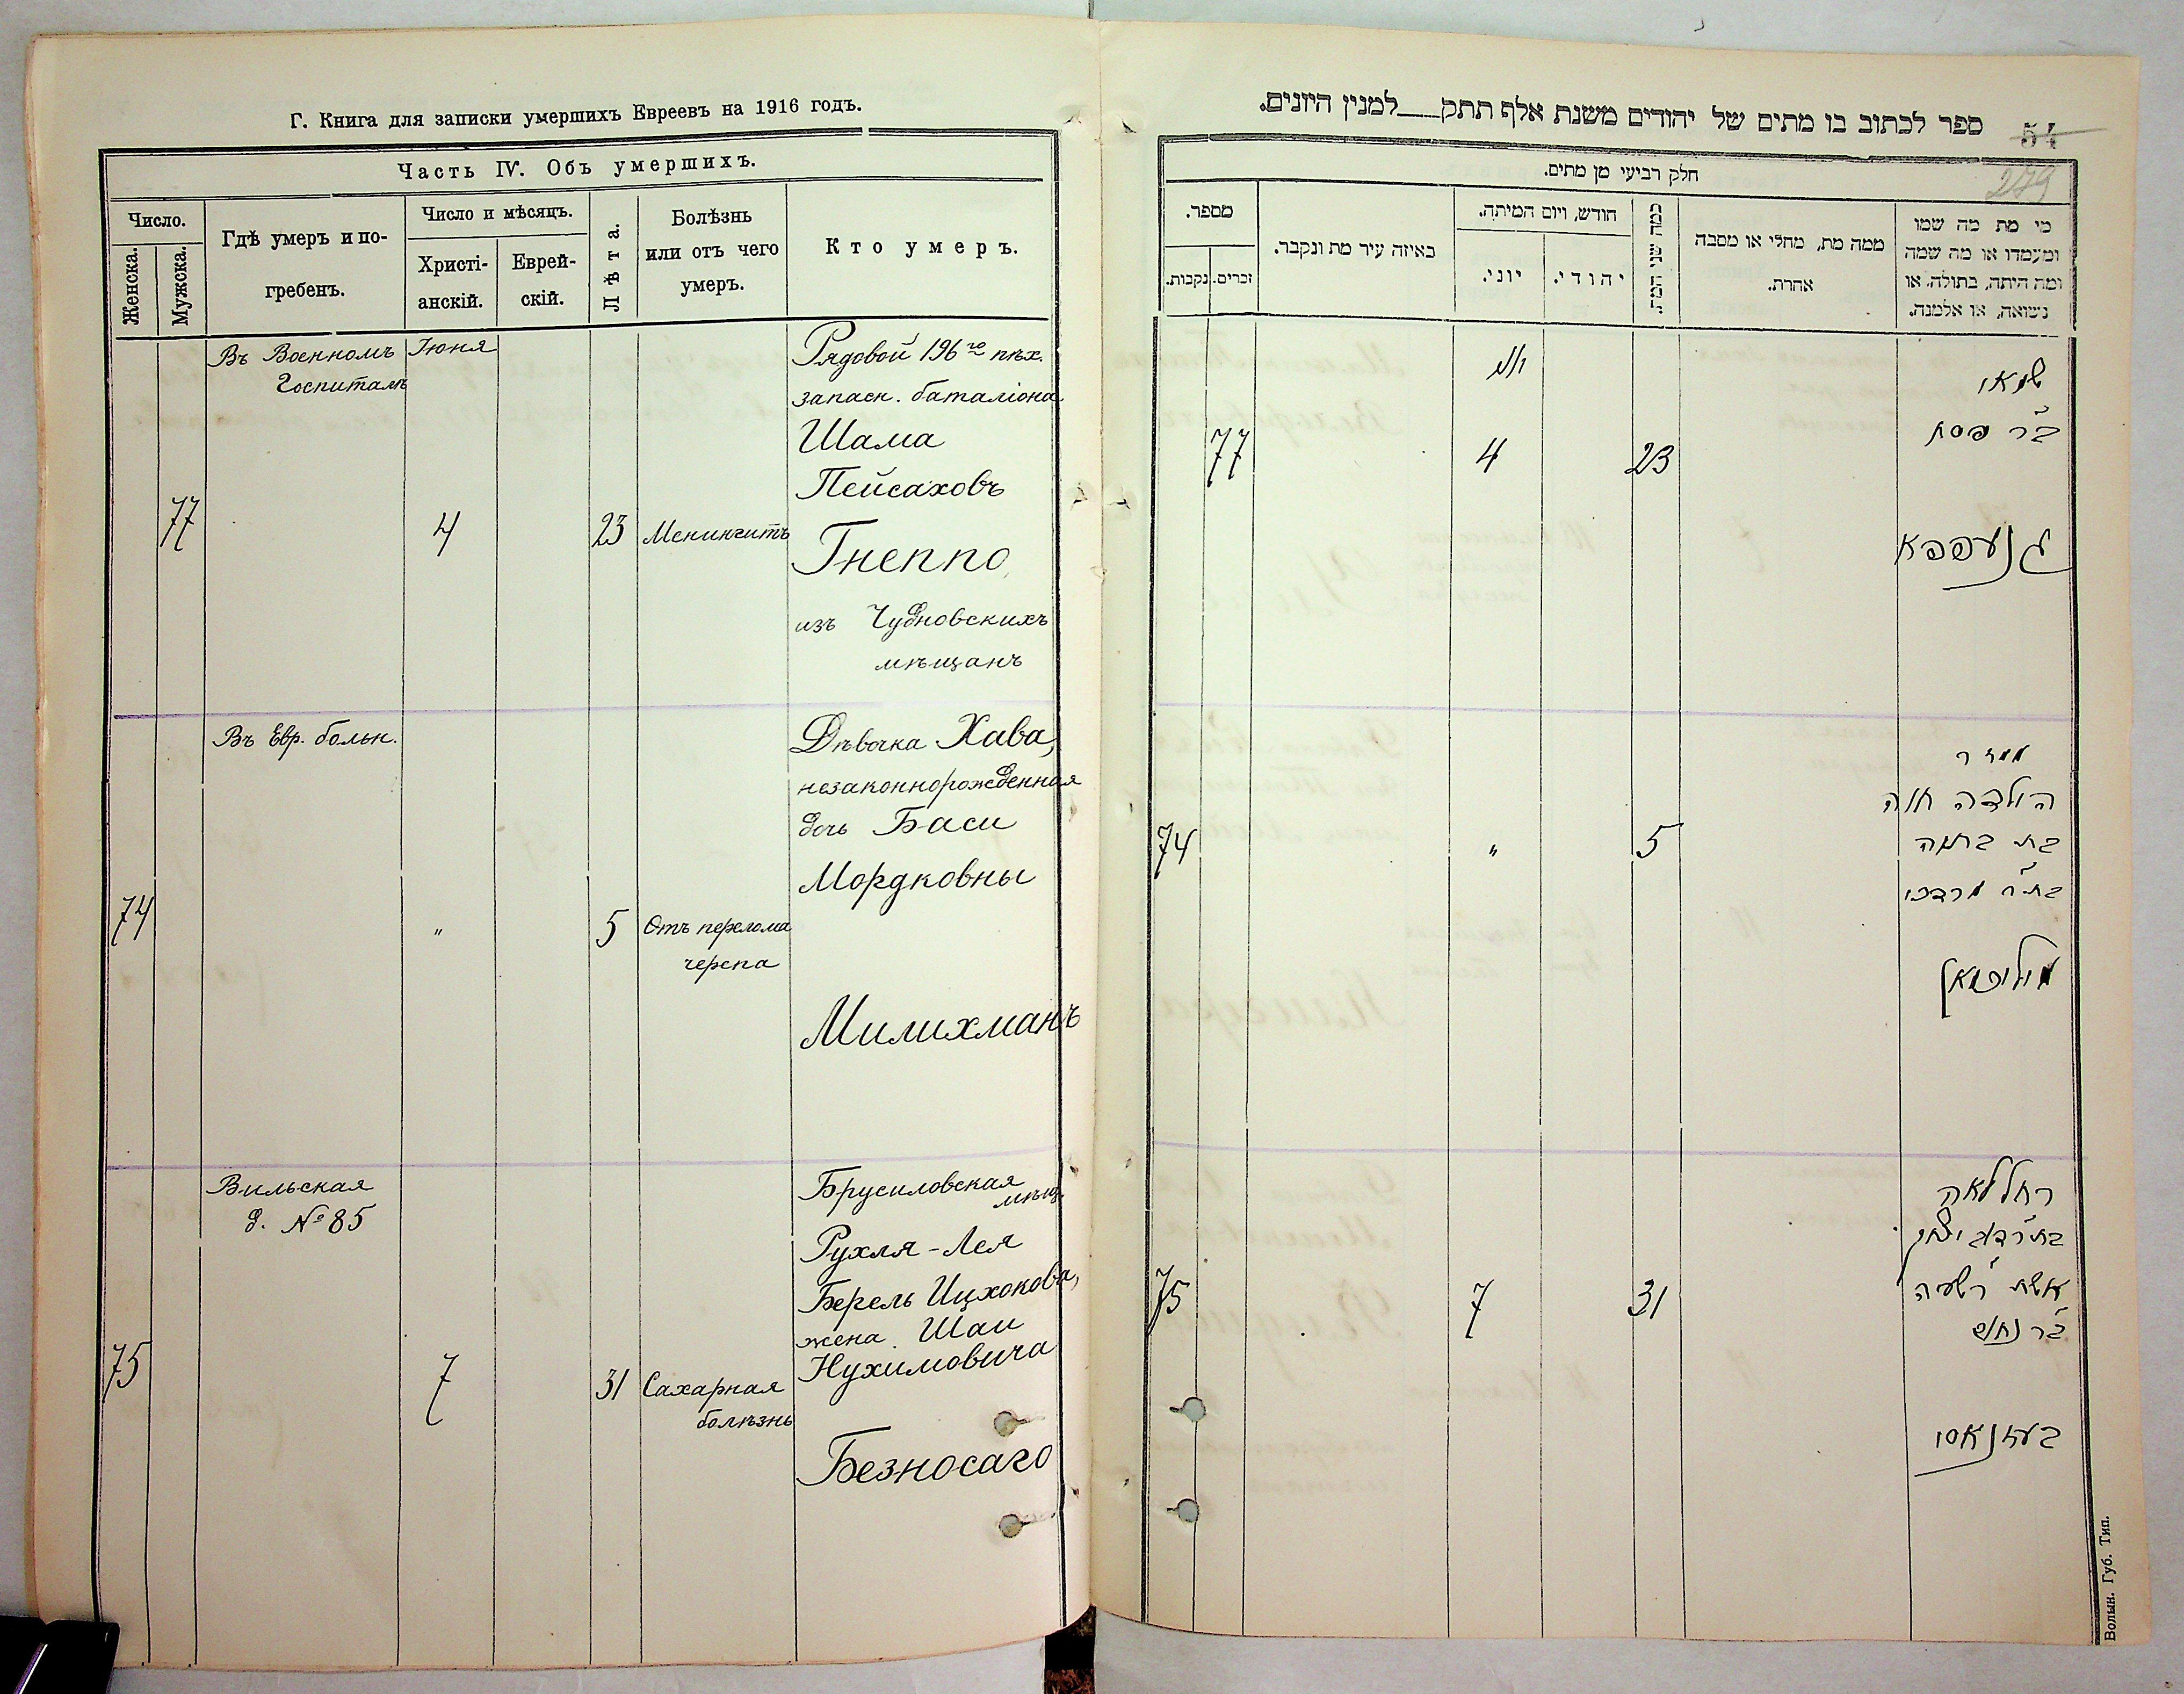 Г. Книга для записки умершихъ Евреевъ на 1916 годъ.
Часть IV. Объ умершихъ.
Число.
Женска.
Мужска.
Гдѣ умеръ и по-
гребенъ.
Число и мѣсяцъ.
Христі-
анскій.
Еврей-
скій.
Лѣта.
Болѣзнь
или отъ чего
умеръ.
Кто умеръ.
Въ Военномъ
Госпиталѣ
Іюня
77
4
23
Менингитъ
Рядовой 196го пѣх.
запасн. баталіона
Шама
Пейсаховъ
Гнеппо
изъ Чудновскихъ
мѣщанъ
Въ Евр. больн.
74
"
5
Отъ перелома
черепа
Дѣвочка Хава,
незаконнорожденная
дочь Баси
Мордковны
Милихманъ
Вильская
д. № 85
75
7
31
Сахарная
болѣзнь
Брусиловская
мѣщ.
Рухля-Лея
Берель Ицхокова,
жена Шаи
Нухимовича
Безносаго
ספר לכתוב בו מתים של יהודים משנת אלף תתק למנין היונים.
54
279
חלק רביעי מן מתים.
מספר.
נקבות.
זכרים.
באיזה עיר מת ונקבר.
חודש, ויום המיתה.
יוני.
יהודי.
כמה שני המת.
ממה מת, מחלי או מסבה
אחרת.
כי מת מה שמו
ומעמדו או מה שמה
ומה היתה, בתולה או
נשואה, או אלמנה.
77
4
23
ב״ר פסח
גנעפפא
74
"
5
הילדה חוה
בת בתיה
בת״ר מרדכי
מיליכמאן
75
7
31
רחל לאה
אשת ר׳ ישעיה
ב״ר נחום
בעזנאסי
Волын. Губ. Тип.